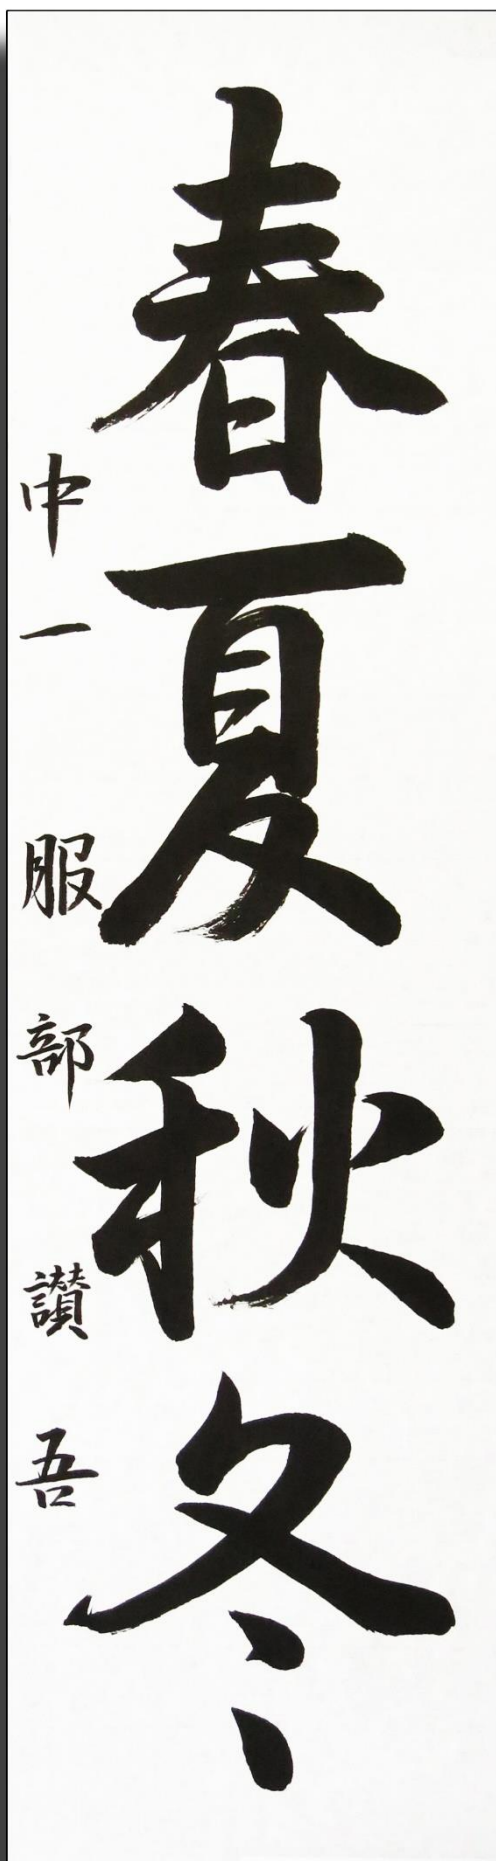 春夏秋冬
中一 服部讃吾